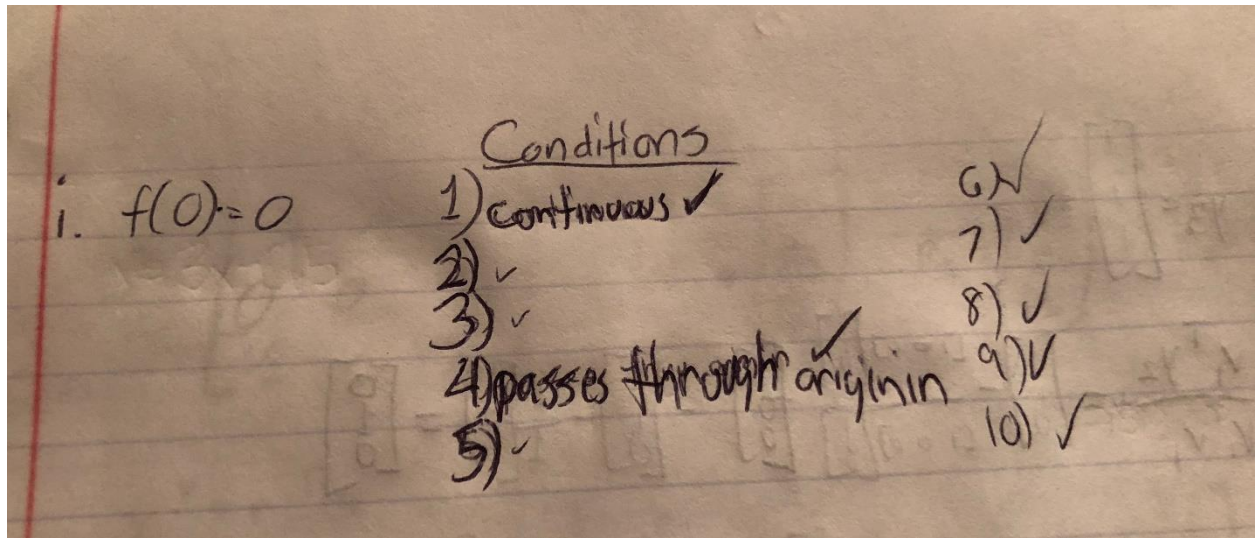 Conditions
i. f(0) = 0
1) continuous ✓
2) ✓
3) ✓
4) passes through originin ✓
5) ✓
6) ✓
7) ✓
8) ✓
9) ✓
10) ✓